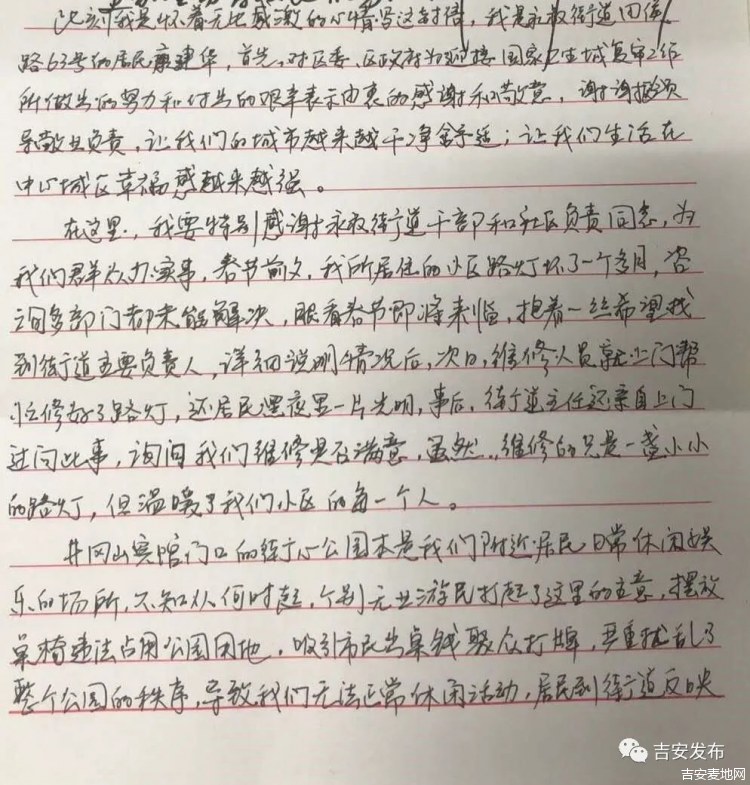 此刻我是怀着无比感激的心情写这封信，我是永叔街道田侯
路63号的居民康建华，首先，对区委、区政府为迎接国家卫生城复审工作
所做出的努力和付出的艰辛表示由衷的感谢和敬意，谢谢
导敬业负责，让我们的城市越来越干净舒适；让我们生活在
中心城区幸福感越来越强。
在这里，我要特别感谢永叔街道干部和社区负责同志，为
我们群众办实事，春节前夕，我所居住的小区路灯坏了一个多月，咨
询多部门都未能解决，眼看春节即将来临，抱着一丝希望找
到街道主要负责人，详细说明情况后，次日，维修人员就上门帮
忙修好了路灯，还居民漆夜里一片光明，事后，街道主任还亲自上门
过问此事，询问我们维修是否满意，虽然，维修的只是一盏小小
的路灯，但温暖了我们小区的每一个人。
井冈山宾馆门口的街心公园本是我们附近居民日常休闲娱
乐的场所，不知从何时起，个别无业游民打起了这里的主意，摆放
桌椅违法占用公园用地，吸引市民出桌钱聚众打牌，严重扰乱了
整个公园的秩序，导致我们无法正常休闲活动，居民到街道反映
吉安发布
吉安麦地网